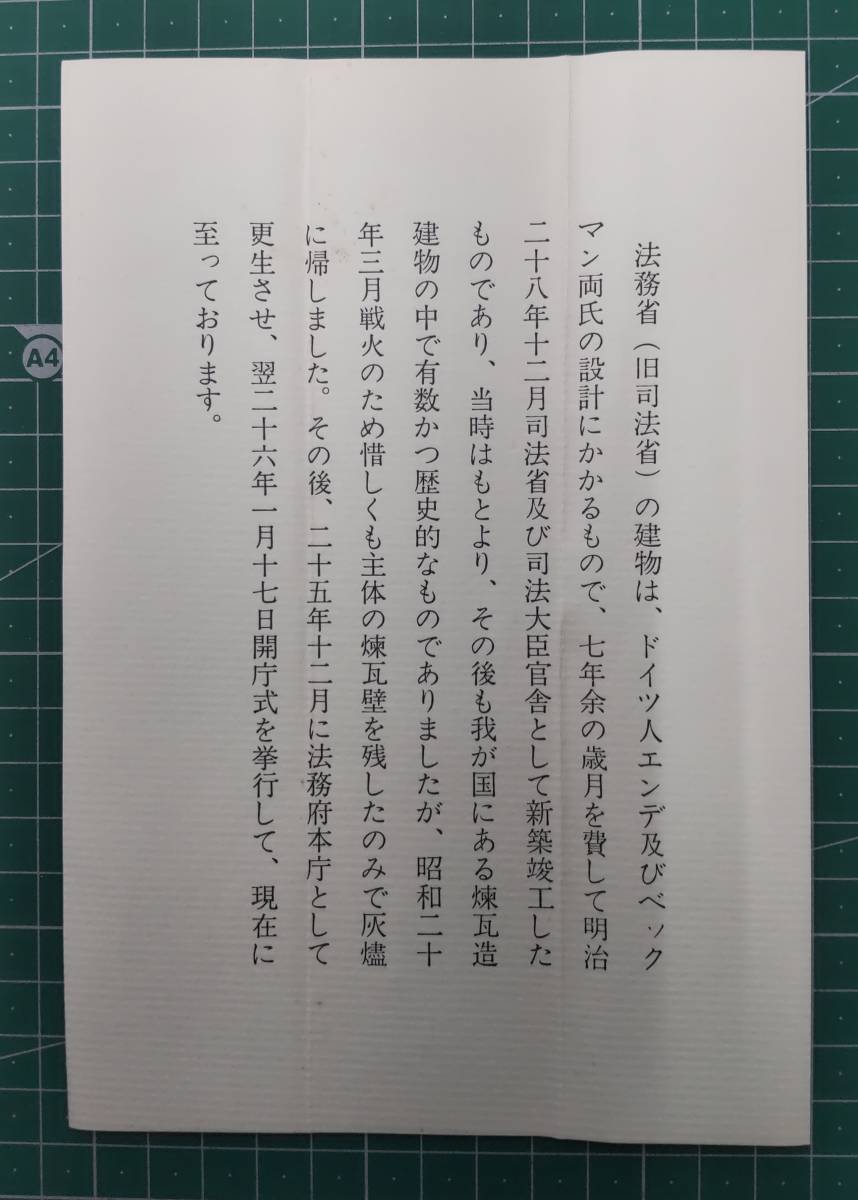 法務省（旧司法省）の建物は、ドイツ人エンデ及びベック
マン両氏の設計にかかるもので、七年余の歳月を費して明治
二十八年十二月司法省及び司法大臣官舎として新築竣工した
ものであり、当時はもとより、その後も我が国にある煉瓦造
建物の中で有数かつ歴史的なものでありましたが、昭和二十
年三月戦火のため惜しくも主体の煉瓦壁を残したのみで灰燼
に帰しました。その後、二十五年十二月に法務府本庁として
更生させ、翌二十六年一月十七日開庁式を挙行して、現在に
至っております。
A4